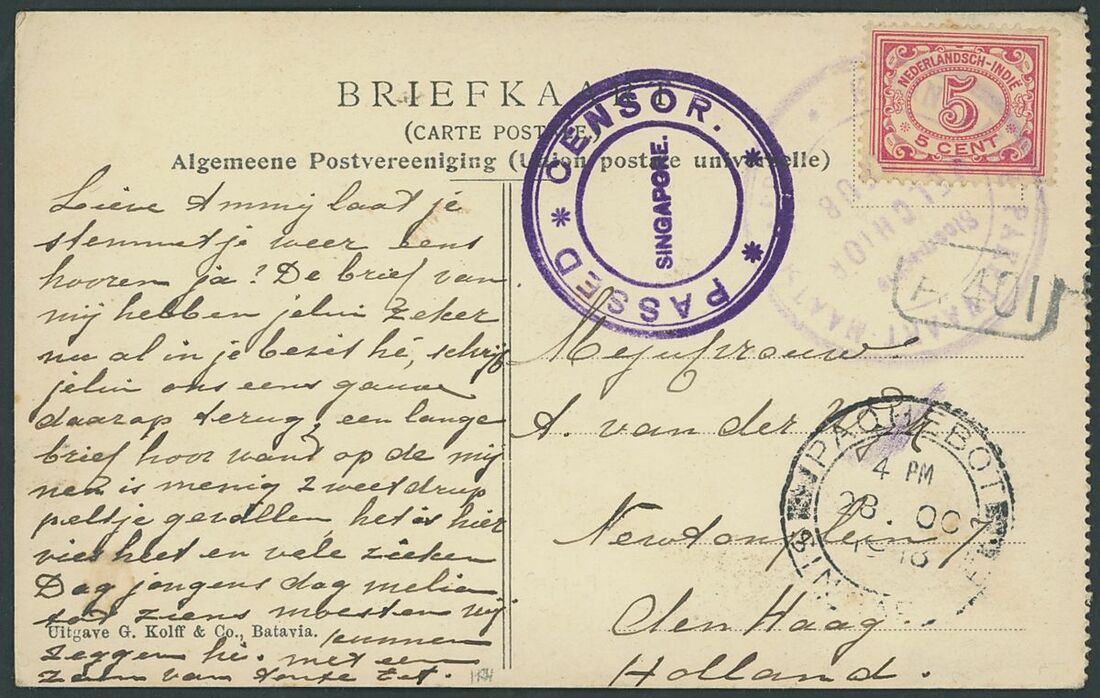 BRIEFKAART
(CARTE POSTALE)
Algemeene Postvereeniging (Union postale universelle)
NEDERLANDSCH-INDIË
5
5 CENT
PASSED * CENSOR.
SINGAPORE.
PAQUEBOT
4 PM
28 OC
1918
Lieve Ammij laat je
stemmetje weer eens
hooren ja? De brief van
mij hebben jelui zeker
nu al in je bezit hé, schrijf
jelui ons eens gauw
daarop terug, een lange
brief hoor want op de mij
nen is menig zweetdrup
peltje gevallen het is hier
vies heet en vele zieken
Dag jongens dag
tot ziens moesten wij
kunnen
zeggen hè. met een
zoen van
Uitgave G. Kolff & Co., Batavia.
Mejufvrouw.
A. van der
Newtonplein
den Haag.
Holland.